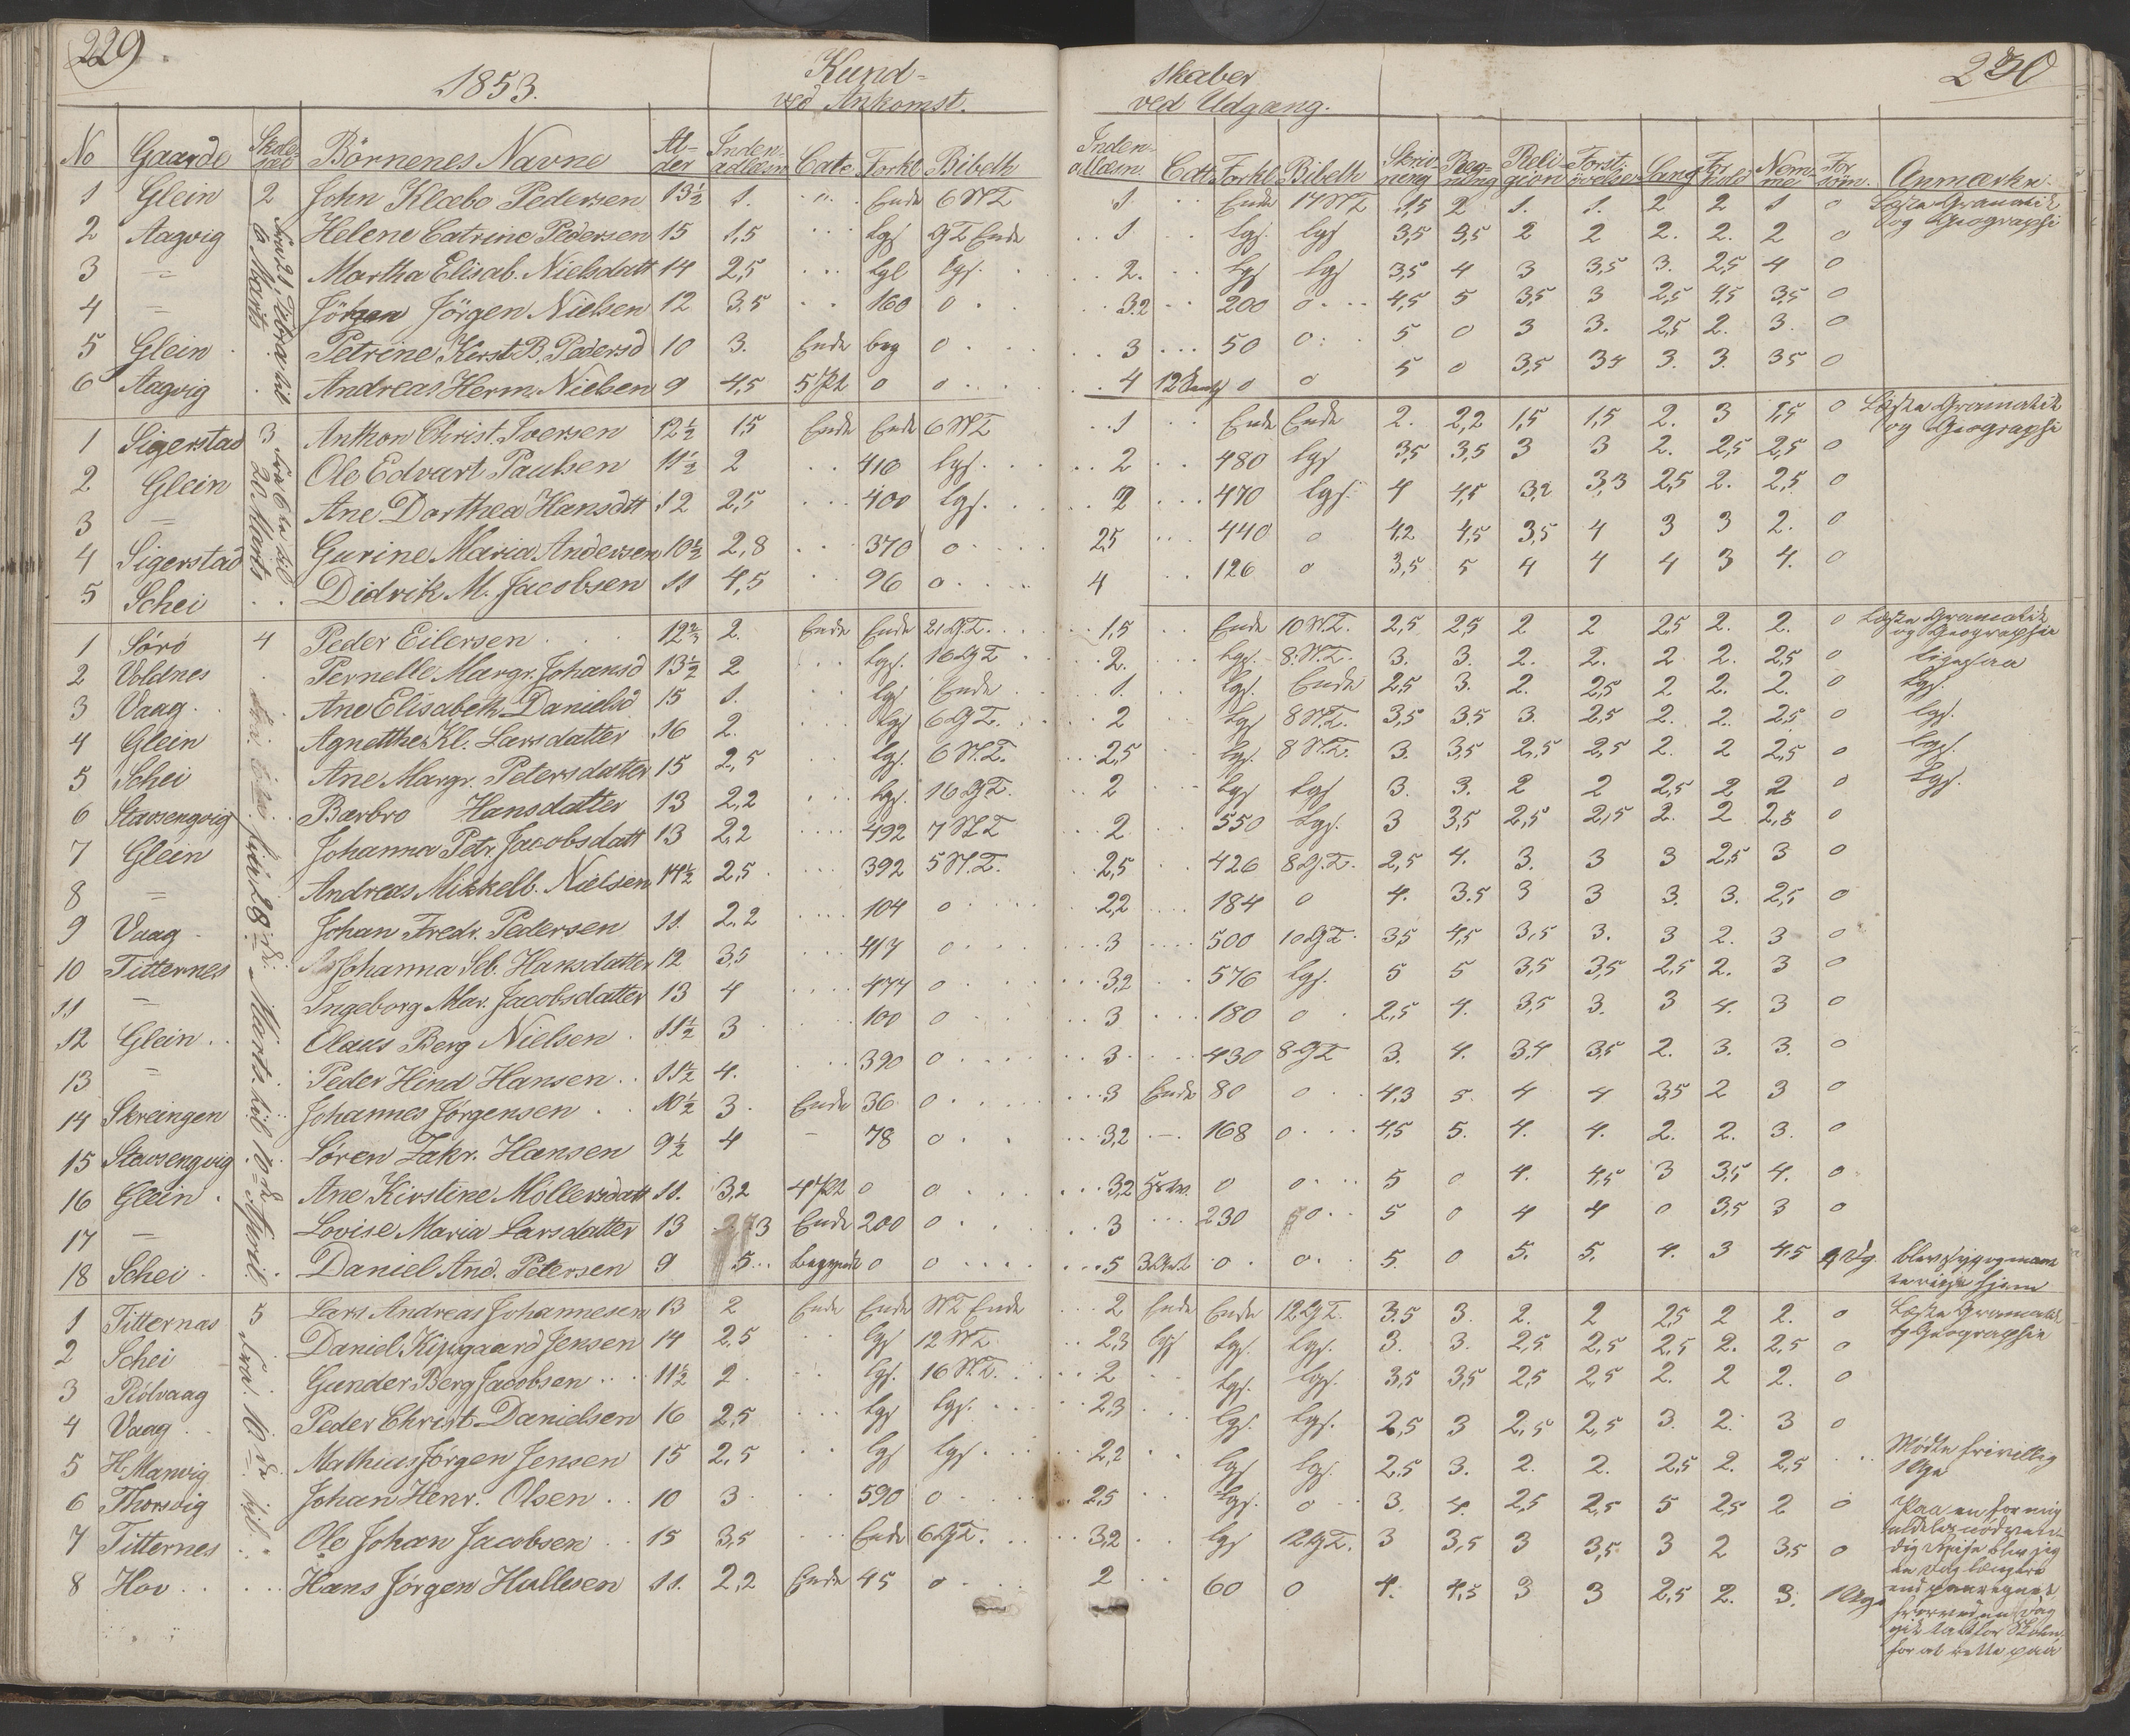 229
1853.
Kund-
ved Ankomst.
skaber
ved Udgang.
230
No Gaarde Börnenes Navne Al-der Inden-adlæsn Cate Forkl Bibelh Inden-allæsn. Cate Forkl. Bibelh Skriv-ning Reg-ning Reli-gion Forst. övelse Sang For-hold Nem-me For-söm. Anmærkn.
1 Glein 2 John Klæbo Pedersen 13½ 1. Ende 6 NT 1 Ende 17 NT 1,5 2 1. 1. 2 2 1 0 Læste Gramatik
2 Aagvig Helene Catrine Pedersen 15 1,5 Lgs GT Ende 1 Lgs. lgs 3,5 3,5 2 2 2. 2. 2 0 og Geographi
3 = Martha Elisab. Nielsdatt 14 2,5 Lgs lgs. 2. lgs lgs 3,5 4 3 3,5 3. 2,5 4 0
4 = Jörgen Nielsen 12 3,5 160 0 3.2 200 0 4,5 5 3,5 3 2,5 4,5 3,5 0
5 Glein Petrine Kerst B. Pedersd 10 3. Ende beg 0 3 50 0 5 0 3 3. 2,5 2. 3. 0
6 Aagvig Andreas Herm. Nielsen 9 4,5 5 Pt 0 0 4 12 0 0 5 0 3,5 34 3. 3. 35 0
Fra 21 Februar til
6. Marts
1 Sigerstad 3 Anthon Christ. Iversen 12½ 1,5 Ende Ende 6 NT 1 Ende Ende 2. 2,2 1,5 1,5 2. 3 1,5 0 Læste Gramatik
2 Glein Ole Edvart Paulsen 11½ 2 410 lgs. 2 480 lgs 3,5 3,5 3 3 2. 2,5 2,5 0 og Geographi
3 = Ane Dorthea Hansdtt 12 2,5 400 lgs. 2 470 lgs. 4 4,5 3,2 3,3 2,5 2. 2,5 0
4 Sigerstad Gurine Maria Andersen 10½ 2,8 370 0 2,5 440 0 4,2 4,5 3,5 4 3 3 2. 0
5 Schei Didrik M. Jacobsen 11 4,5 96 0 4 126 0 3,5 5 4 4 4 3 4. 0
Fra 6te til
20 Marts
1 Sörö 4 Peder Eilersen 12⅔ 2. Ende Ende 21 GT. 1,5 Ende 10 N.T. 2,5 2,5 2 2 2,5 2. 2. 0 Læste Gramatik
og Geographie
2 Voldnes Pernelle Margr. Johansd 13½ 2 Lgs. 16 GT 2. Lgs. 8. N.T. 3. 3. 2. 2. 2 2. 2,5 0 ligesaa
3 Vaag Ane Elisabeth Danielsd 15 1. lgs Ende 1. lgs. Ende 2,5 3. 2. 2,5 2 2. 2. 0 lgs.
4 Glein Agnethe Kl. Larsdatter 16 2. Lgs 6 GT. 2 Lgs 8 N.T. 3,5 3.5 3. 2,5 2. 2. 2,5 0 lgs.
5 Schei Ane Margr. Petersdatter 15 2,5 lgs. 6 N.T. 2,5 lgs. 8 N.T. 3. 3,5 2,5 2,5 2. 2 2,5 0 lgs.
6 Stavsengvig Barbro Hansdatter 13 2,2 lgs. 16 GT. 2 lgs lgs 3. 3. 2 2 2,5 2 2 0 lgs.
7 Glein Johanna Petr. Jacobsdatt 13 2,2 492 7 NT 2 550 lgs. 3 3,5 2,5 2,5 2. 2 2,5 0
8 = Andreas Mikkelb. Nielsen 14½ 2,5 392 5 N.T. 2,5 426 8 G.T. 2,5 4. 3. 3 3 2,5 3 0
9 Vaag Johan Fredr. Pedersen 11. 2.2 104 0 2,2 184 0 4. 3.5 3 3 3. 3. 2,5 0
10 Titternes Johanna Seb. Hansdatter 12 3,5 417 0 3 500 10 GT 3,5 4,5 3,5 3. 3 2. 3 0
11 = Ingeborg Mar. Jacobsdatter 13 4 477 0 3,2 576 lgs. 5 5 3,5 3,5 2,5 2. 3 0
12 Glein Olaus Berg Nielsen 11½ 3 100 0 3 180 0 2,5 4. 3,5 3. 3 4. 3 0
13 = Peder Hind Hansen 11½ 4. 390 0 3 430 8 GT 3. 4. 3,4 3,5 2. 3. 3. 0
14 Skreingen Johannes Jørgensen 10½ 3 Ende 36 0 3 Ende 80 0 4,3 5. 4 4 3,5 2 3 0
15 Stavsengvig Søren Zakr. Hansen 9½ 4 - 78 0 3,2 - 168 0 4,5 5. 4. 4. 2. 2. 3. 0
16 Glein Ane Kirstine Möllersdatt 11. 3,2 4 Pt 0 0 3,2 0 0 5 0 4. 4,5 3 3,5 4. 0
17 = Lovise Maria Larsdatter 13 3 Ende 200 0 3 230 0 5 0 4 4 0 3,5 3 0
18 Schei Daniel And. Petersen 9 5 Begyndt 0 0 5 0 0 5. 0 5. 5. 4. 3 4.5 blev syg og maatte
rejse hjem
Marts til 10de April.
1 Titternæs 5 Lars Andreas Johannesen 13 2 Ende Ende NT Ende 2 Ende Ende 12 GT. 3.5 3. 2. 2 2,5 2 2. 0 Læste Gramatik
2 Schei Daniel Kipgaard Jensen 14 2,5 lgs 12 NT 2,3 lgs lgs. lgs. 3. 3. 2,5 2,5 2,5 2. 2,5 0 og Geographie
3 Rölvaag Gunder Berg Jacobsen 11½ 2 lgs. 16 N.T. 2 lgs. lgs. 3,5 3,5 2,5 2,5 2. 2 2. 0
4 Vaag Peder Christ. Danielsen 16 2,5 lgs lgs. 2,3 lgs. lgs. 2,5 3 2,5 2,5 3. 2. 3 0
5 H. Marvig Mathius Jörgen Jensen 15 2,5 lgs lgs. 2,2 lgs lgs. 2,5 3. 2. 2. 2,5 2. 2,5 Mødte frivillig
1 Uge
6 Thorsvig Johan Henr. Olsen 10 3 590 0 2,5 lgs. 0 3. 4. 2,5 2,5 5 2,5 2 0 Paa en for mig
7 Titternes Ole Johan Jacobsen 15 3,5 Ende 6 GT. 3,2 lgs 12 GT. 3 3,5 3 3,5 3 2 3,5 0 aldeles nødven-
dig Reise blev jeg
en Dag længere
8 Hov Hans Jörgen Hallesen 11. 2,2 Ende 45 0 2 60 0 4. 4,5 3 3 2,5 2. 3. 1 Uge end paaregnet
hvorved en Dag
gik tabt for Skolen
for at rette paa
Fra 10de til